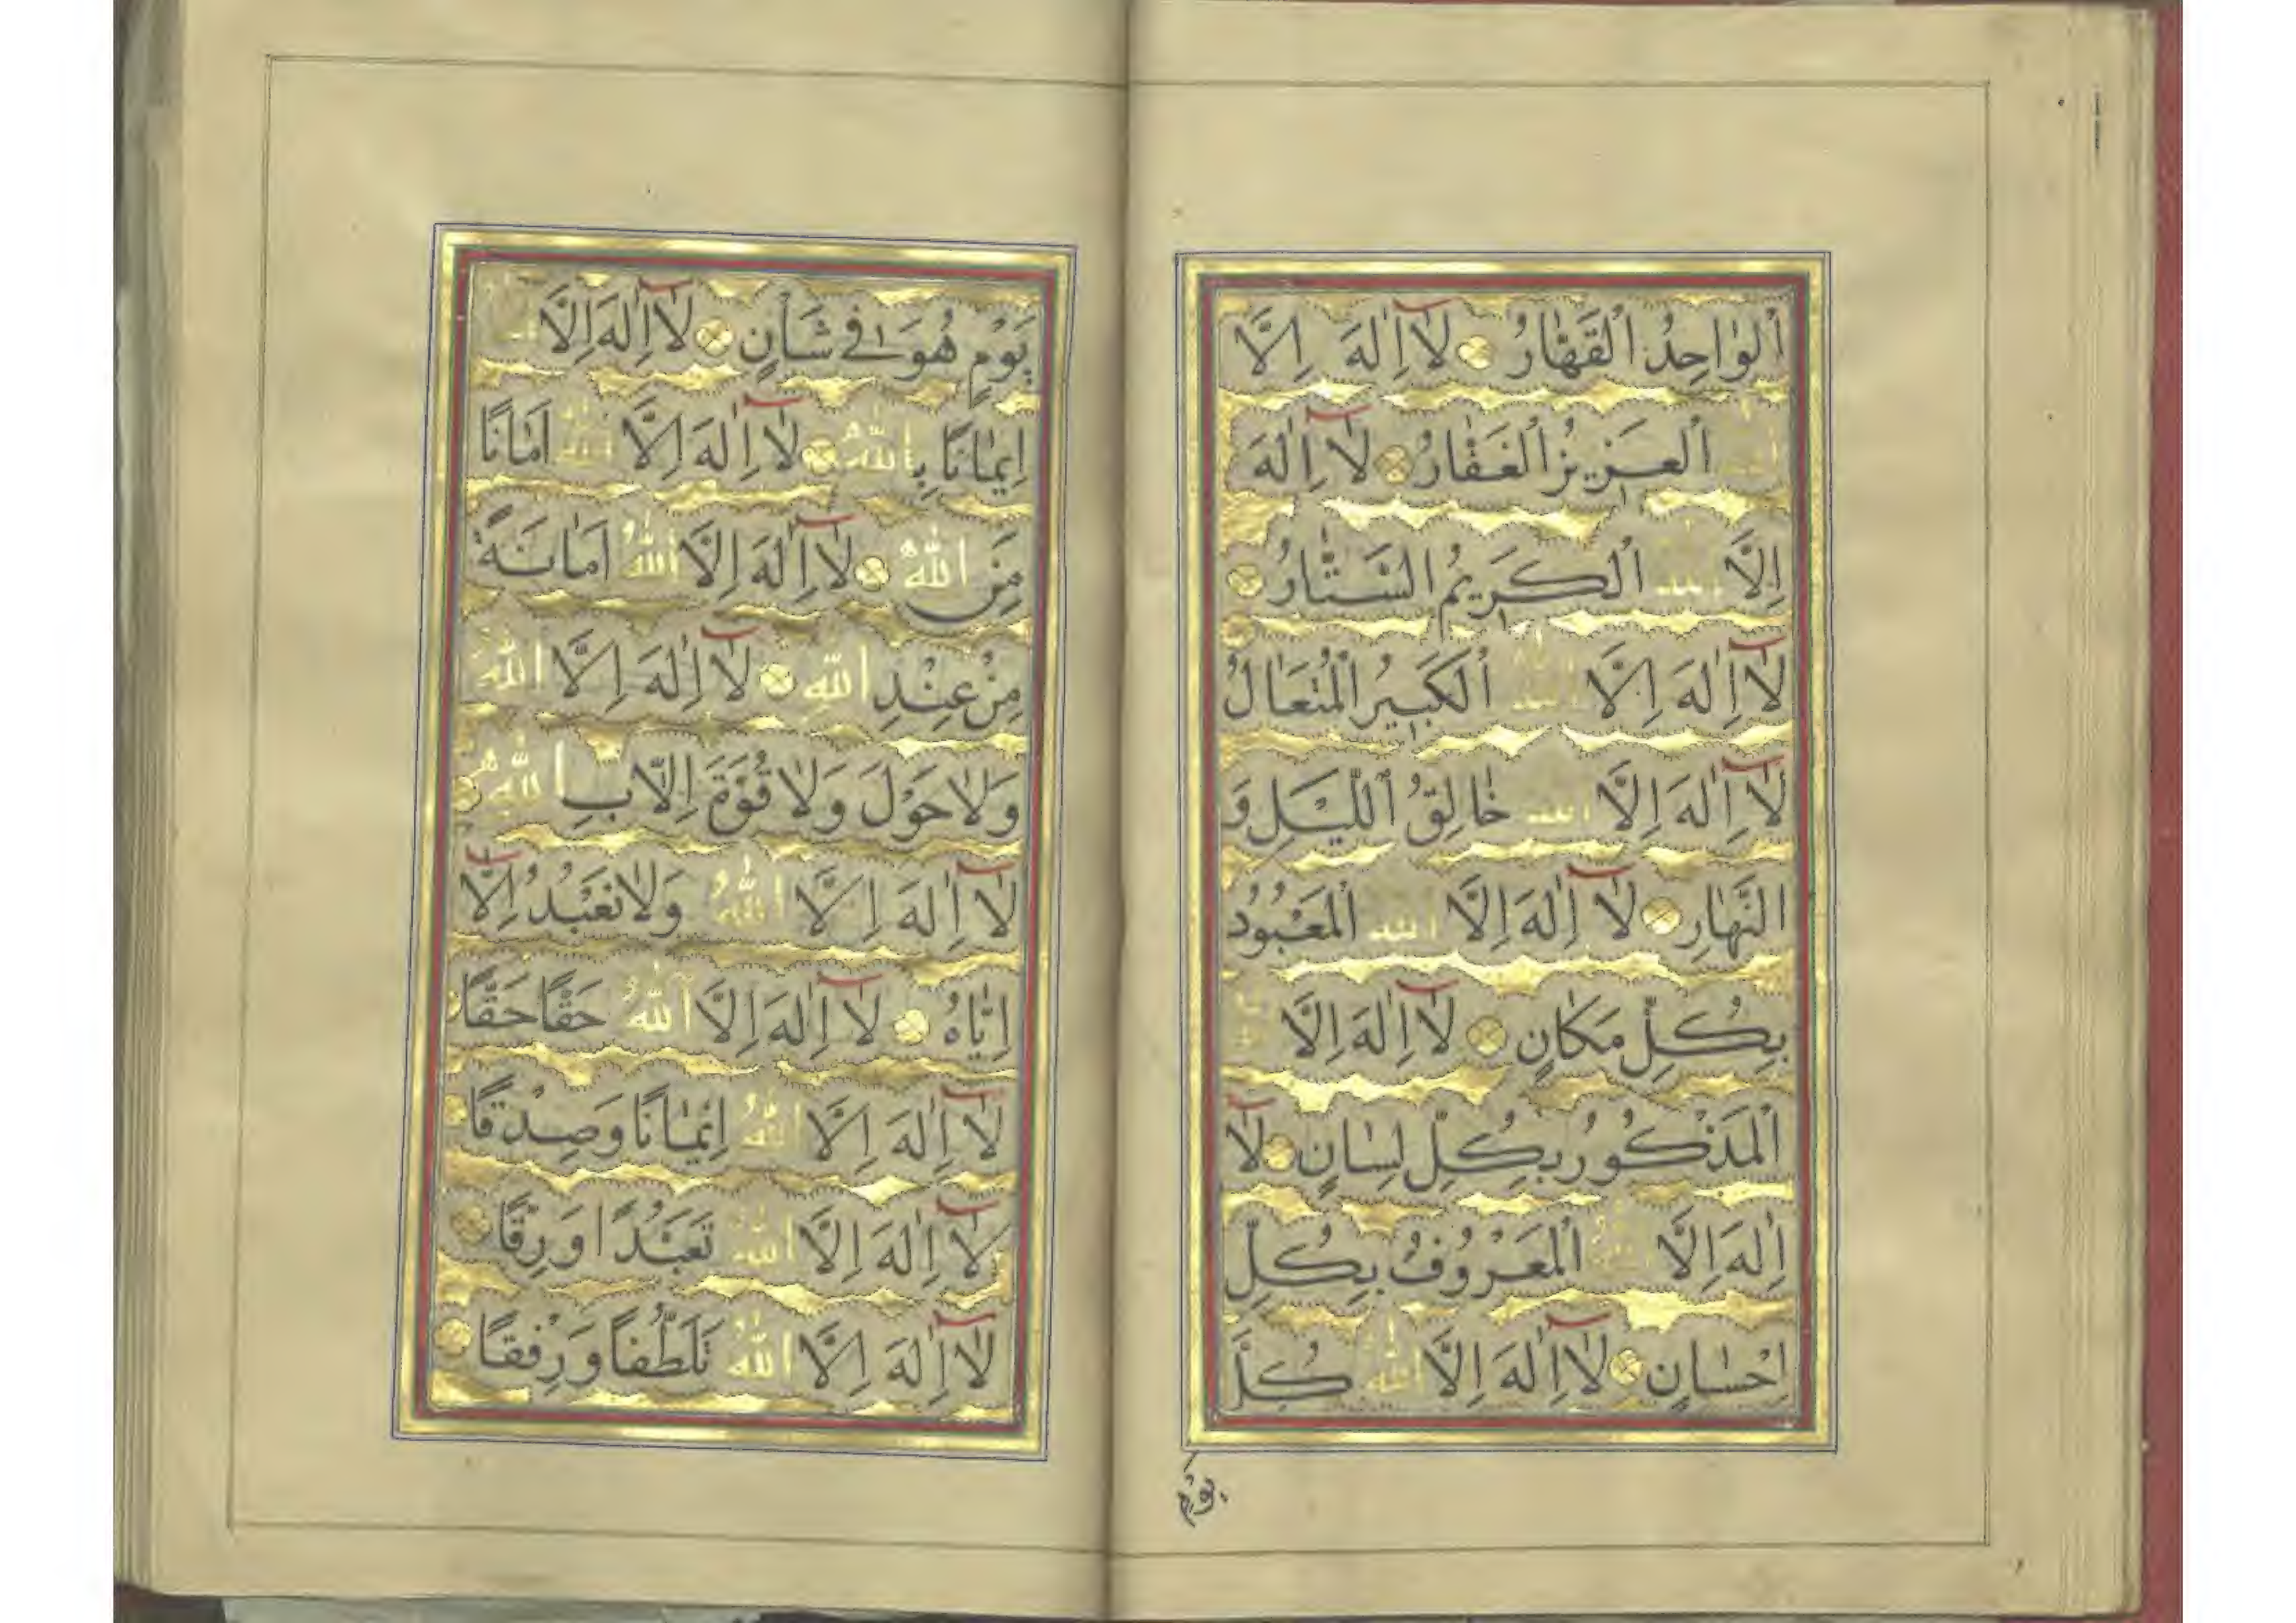 اَلْوَاحِدُ الْقَهَّارُ لَا اِلٰهَ اِلَّا
الله اَلْعَزِيزُ الْغَفَّارُ لَا اِلٰهَ
اِلَّا الله اَلْكَرِيمُ السَّتَّارُ
لَا اِلٰهَ اِلَّا الله اَلْكَبِيرُ الْمُتَعَالُ
لَا اِلٰهَ اِلَّا الله خَالِقُ اللَّيْلِ وَ
النَّهَارِ لَا اِلٰهَ اِلَّا الله الْمَعْبُودُ
بِكُلِّ مَكَانٍ لَا اِلٰهَ اِلَّا الله
الْمَذْكُورُ بِكُلِّ لِسَانٍ لَا
اِلٰهَ اِلَّا الله الْمَعْرُوفُ بِكُلِّ
اِحْسَانٍ لَا اِلٰهَ اِلَّا اللهُ كُلَّ
يَوْم
يَوْمٍ هُوَ فِي شَأْنٍ لَا اِلٰهَ اِلَّا الله
اِيمَانًا بِاللهِ لَا اِلٰهَ اِلَّا اللهُ اَمَانًا
مِنَ اللهِ لَا اِلٰهَ اِلَّا اللهُ اَمَانَةً
مِنْ عِنْدِ اللهِ لَا اِلٰهَ اِلَّا اللهُ
وَلَا حَوْلَ وَلَا قُوَّةَ اِلَّا بِاللهِ
لَا اِلٰهَ اِلَّا اللهُ وَلَا نَعْبُدُ اِلَّا
اِيَّاهُ لَا اِلٰهَ اِلَّا اللهُ حَقًّا حَقًّا
لَا اِلٰهَ اِلَّا اللهُ اِيْمَانًا وَصِدْقًا
لَا اِلٰهَ اِلَّا اللهُ تَعَبُّدًا وَ رِقًّا
لَا اِلٰهَ اِلَّا اللهُ تَلَطُّفًا وَ رِفْقًا